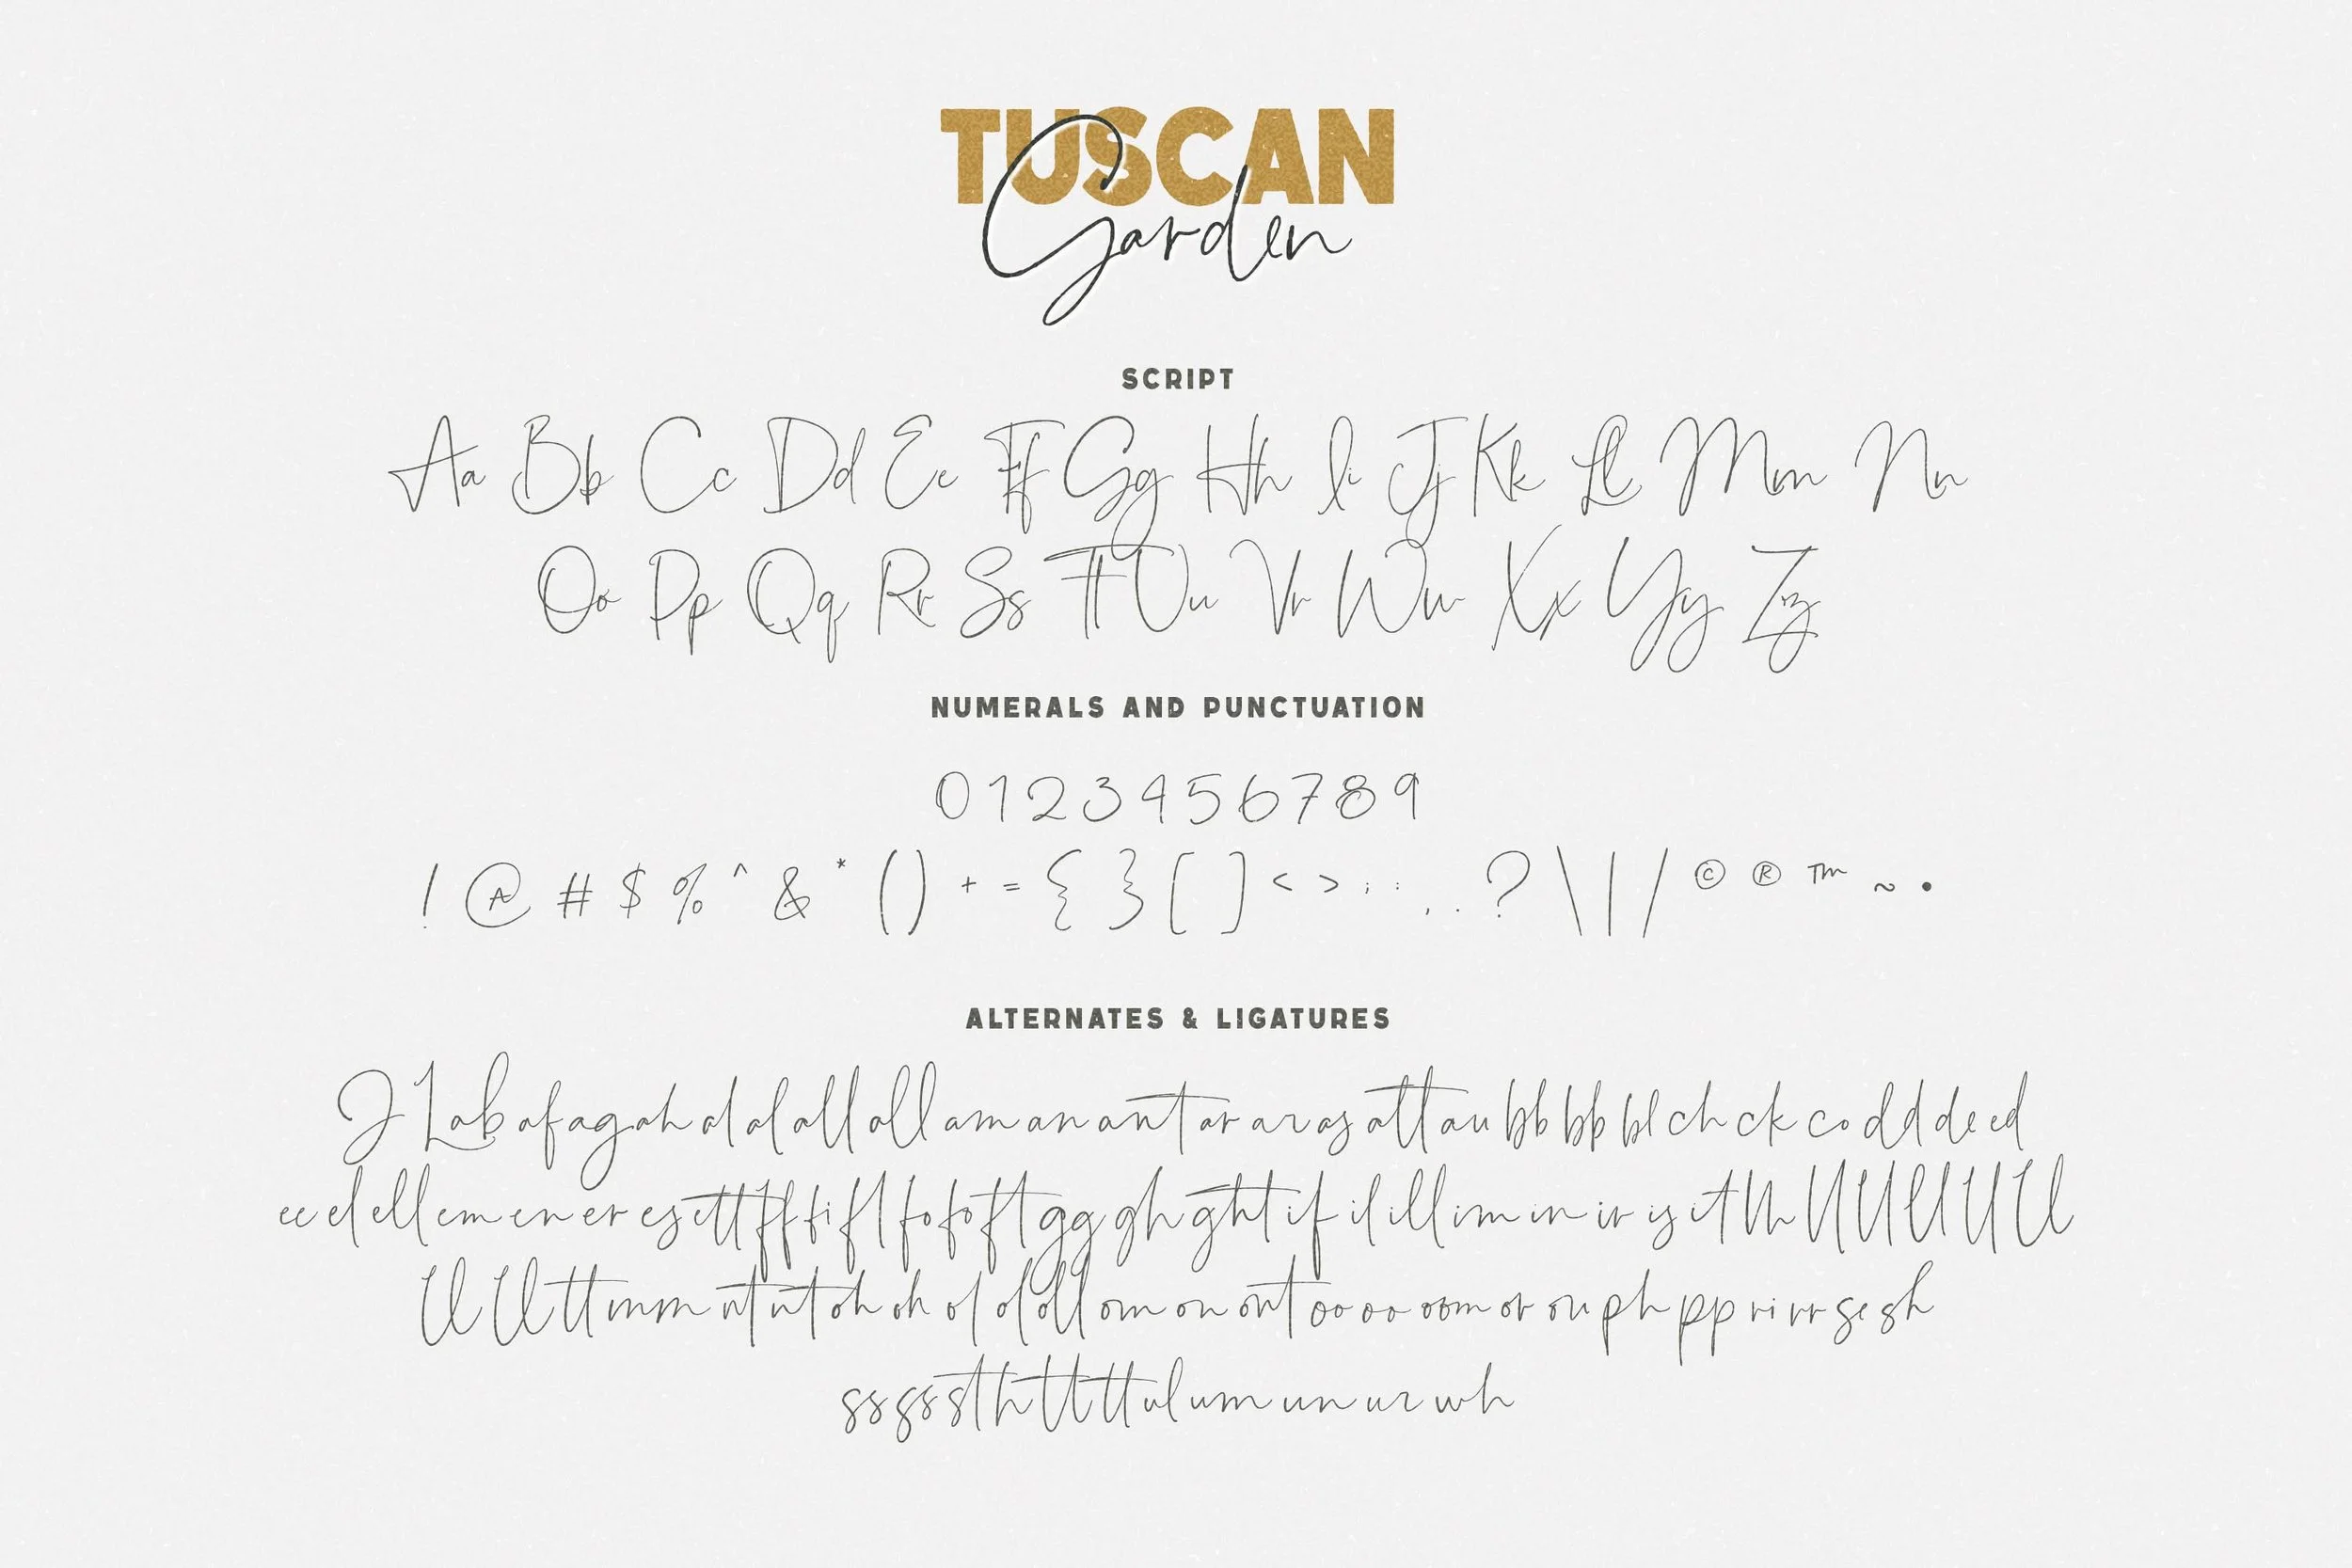 TUSCAN
Garden
SCRIPT
Aa Bb Cc Dd Ee Ff Gg Hh Ii Jj Kk Ll Mm Nn
Oo Pp Qq Rr Ss Tt Uu Vv Ww Xx Yy Zz
NUMERALS AND PUNCTUATION
0 1 2 3 4 5 6 7 8 9
! @ # $ % ^ & * ( ) + = { } [ ] < > ; : , . ? \ | / © ® ™ ~ •
ALTERNATES & LIGATURES
J L ab af ag ah al al all all am an an ant ar ar as att au bb bb bl ch ck co d d de ed
ee el ell em en er es ett ff fi fl fo fo ft gg gh ght if il ill im in ir is it
tt mm nt nt oh oh ol ol oll om on ont oo oo oom or ou ph pp ri rr se sh
ss ss st th tt tt ul um un ur wh